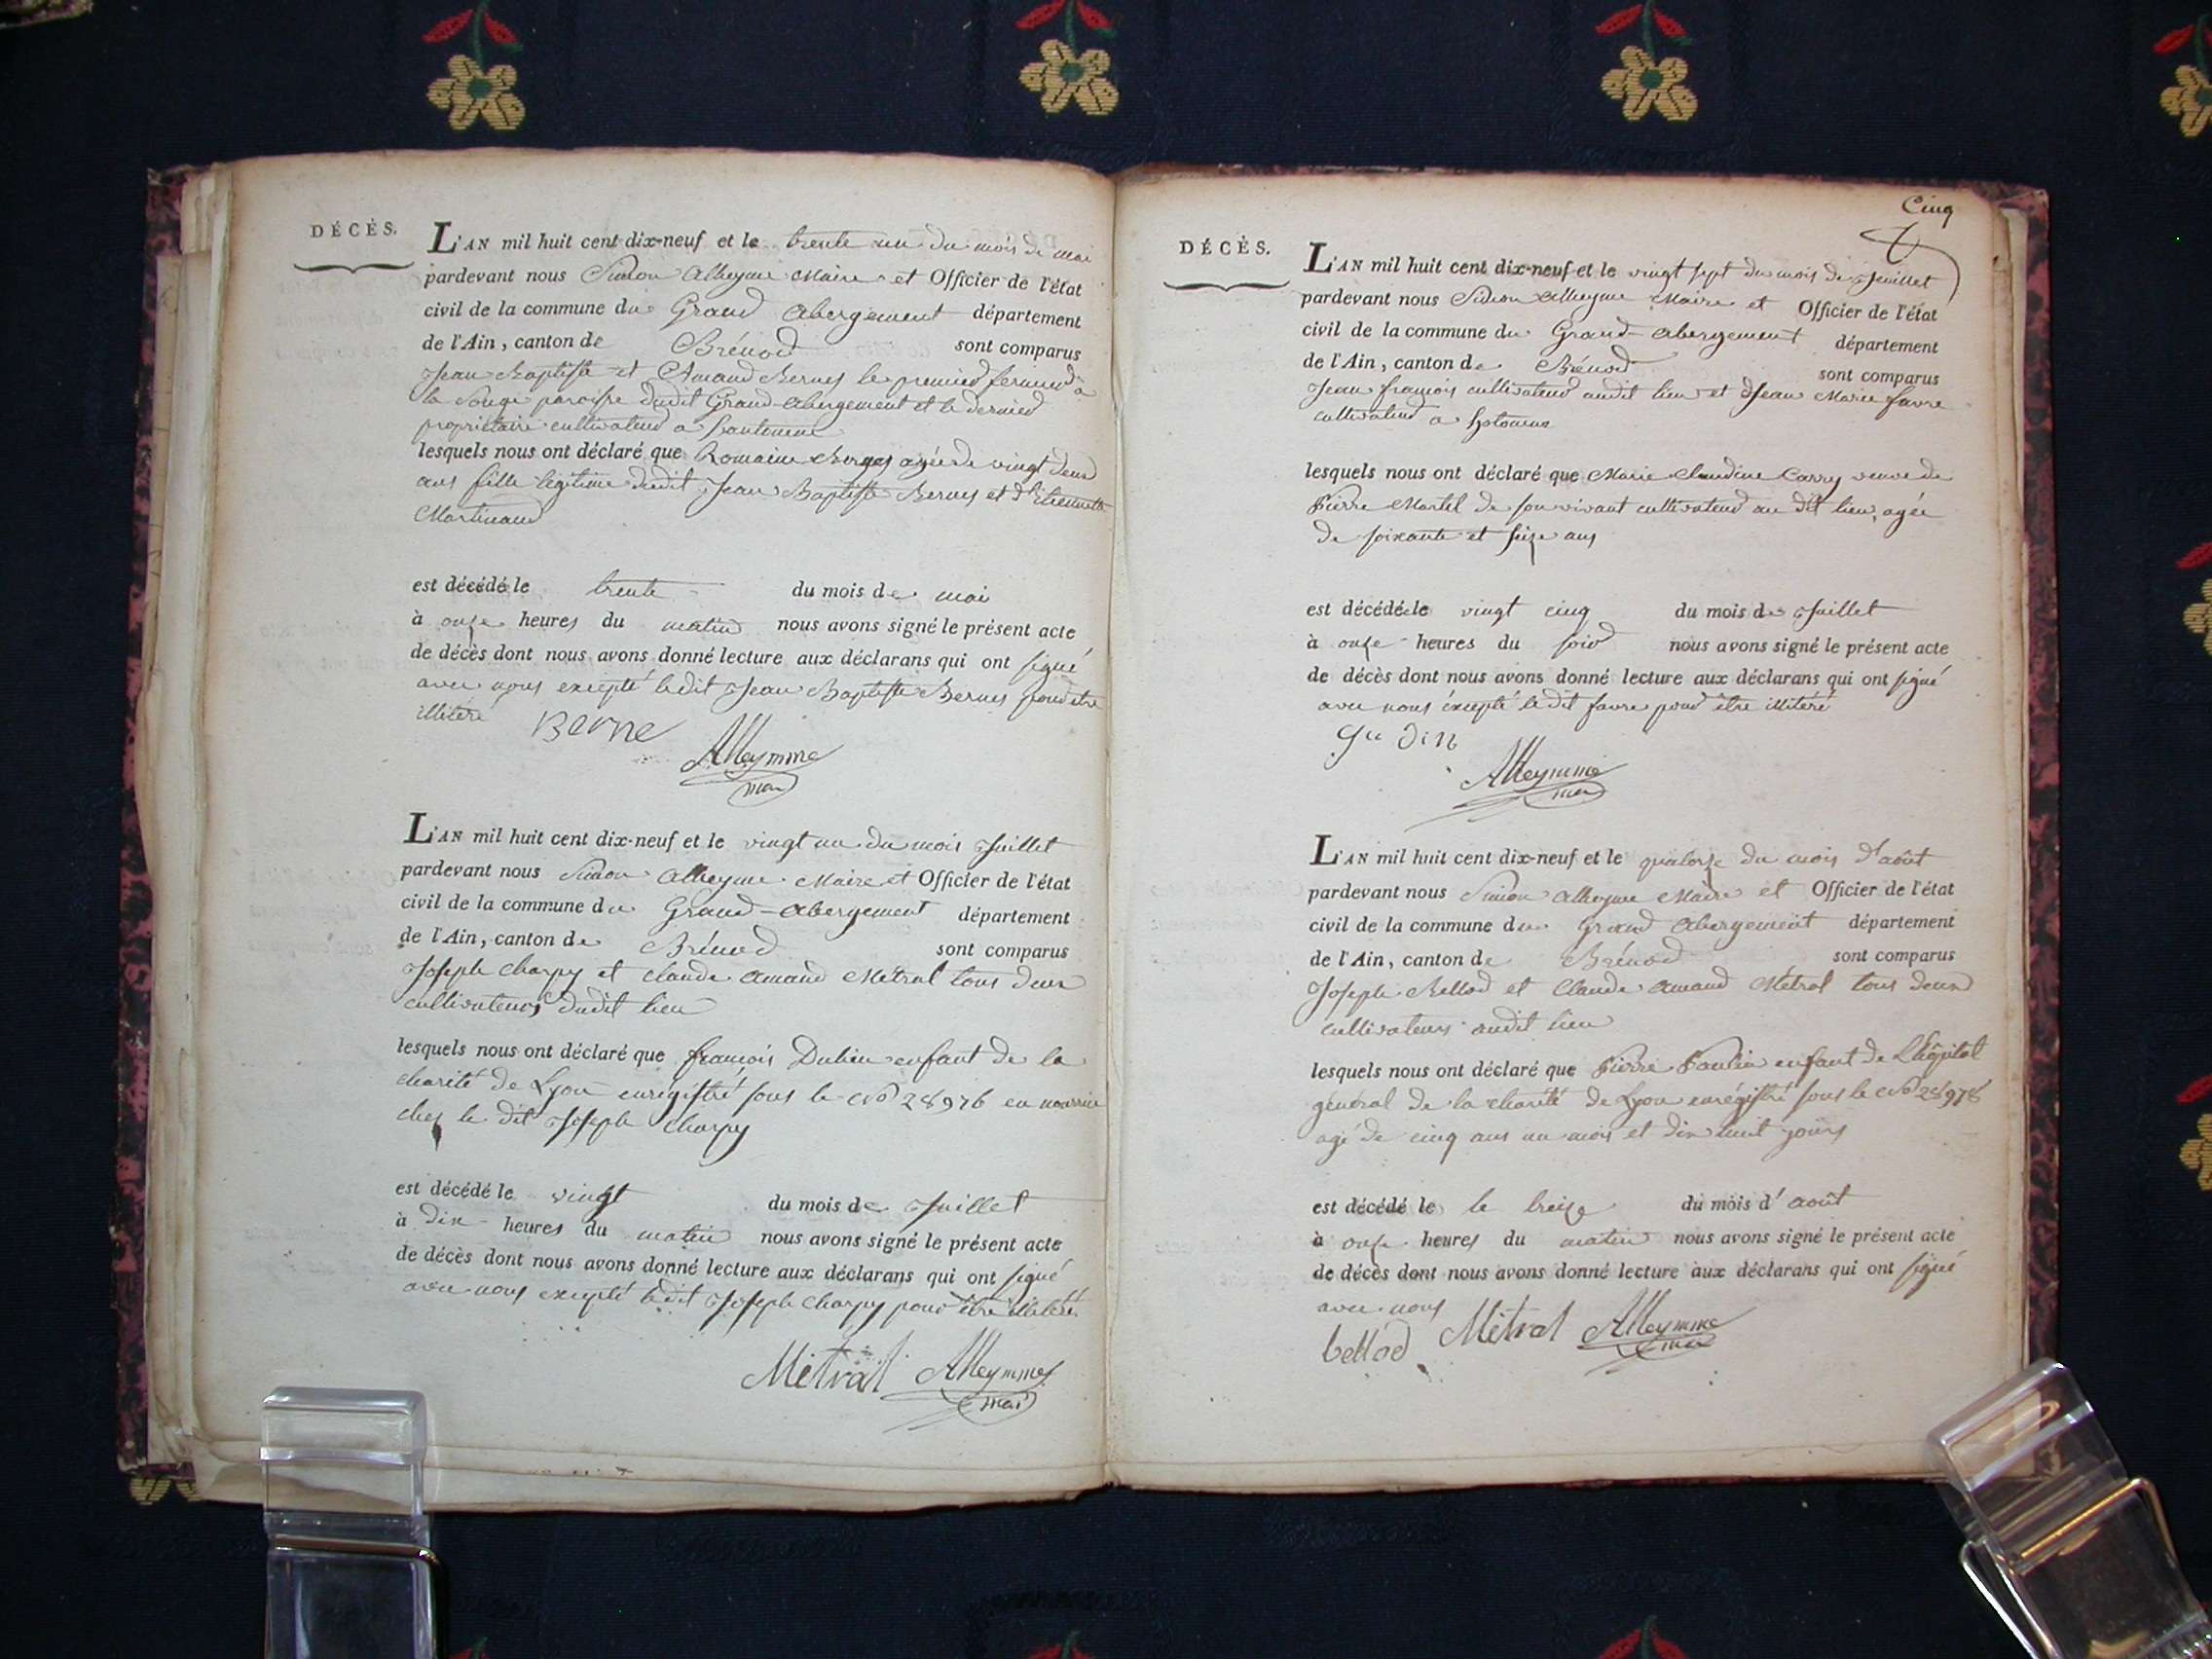 DÉCÈS.
L'AN mil huit cent dix-neuf et le trente un du mois de mai
pardevant nous Simon Alleyme Maire et Officier de l'état
civil de la commune du Grand Abergement département
de l'Ain, canton de Brénod sont comparus
Jean Baptiste et Amand Bernes le premier fermier à
la paroisse dudit Grand-Abergement et le dernier
propriétaire cultivateur a
lesquels nous ont déclaré que Romaine Bernes agée de vingt deux
ans fille légitime dudit Jean Baptiste Bernes et d'Etiennette
Martinand
est décédé le trente du mois de mai
à onze heures du matin nous avons signé le présent acte
de décès dont nous avons donné lecture aux déclarans qui ont signé
avec nous excepté ledit Jean Baptiste Bernes pour etre
illitéré Berne
Alleymme
mai
L'AN mil huit cent dix-neuf et le vingt un du mois Juillet
pardevant nous Simon Alleyme Maire et Officier de l'état
civil de la commune du Grand-Abergement département
de l'Ain, canton de Brénod sont comparus
Joseph Charpy et Claude Amand Métral tous deux
cultivateurs dudit lieu
lesquels nous ont déclaré que françois Dubien enfant de la
charité de Lyon enrégistré sous le No 28976 en nourrice
chez le dit Joseph Charpy
est décédé le vingt du mois de Juillet
à dix heures du matin nous avons signé le présent acte
de décès dont nous avons donné lecture aux déclarans qui ont signé
avec nous excepté ledit Joseph Charpy pour être illitéré
Métral Alleymme
mai
Cinq
DÉCÈS.
L'AN mil huit cent dix-neuf et le vingt sept du mois de Juillet
pardevant nous Simon Alleyme Maire et Officier de l'état
civil de la commune du Grand-Abergement département
de l'Ain, canton de Brénod sont comparus
Jean françois cultivateur audit lieu et Jean Marie favre
cultivateur a hotonnes
lesquels nous ont déclaré que Marie Claudine Carry veuve de
Pierre Martel de son vivant cultivateur au dit lieu, agée
de soixante et seize ans
est décédé le vingt cinq du mois de Juillet
à onze heures du soir nous avons signé le présent acte
de décès dont nous avons donné lecture aux déclarans qui ont signé
avec nous éxcepté le dit favre pour être illitéré
gudin
Alleymme
mai
L'AN mil huit cent dix-neuf et le quatorze du mois d'août
pardevant nous Simon Alleyme Maire et Officier de l'état
civil de la commune du Grand Abergement département
de l'Ain, canton de Brénod sont comparus
Joseph Bellod et Claude Amand Métral tous deux
cultivateurs audit lieu
lesquels nous ont déclaré que Pierre Paulin enfant de L'hôpital
général de la charité de Lyon enrégistré sous le No 28978
agé de cinq ans un mois et dix huit jours
est décédé le le treize du mois d'août
à onze heures du matin nous avons signé le présent acte
de décès dont nous avons donné lecture aux déclarans qui ont signé
avec nous
bellod Métral Alleymme
mai